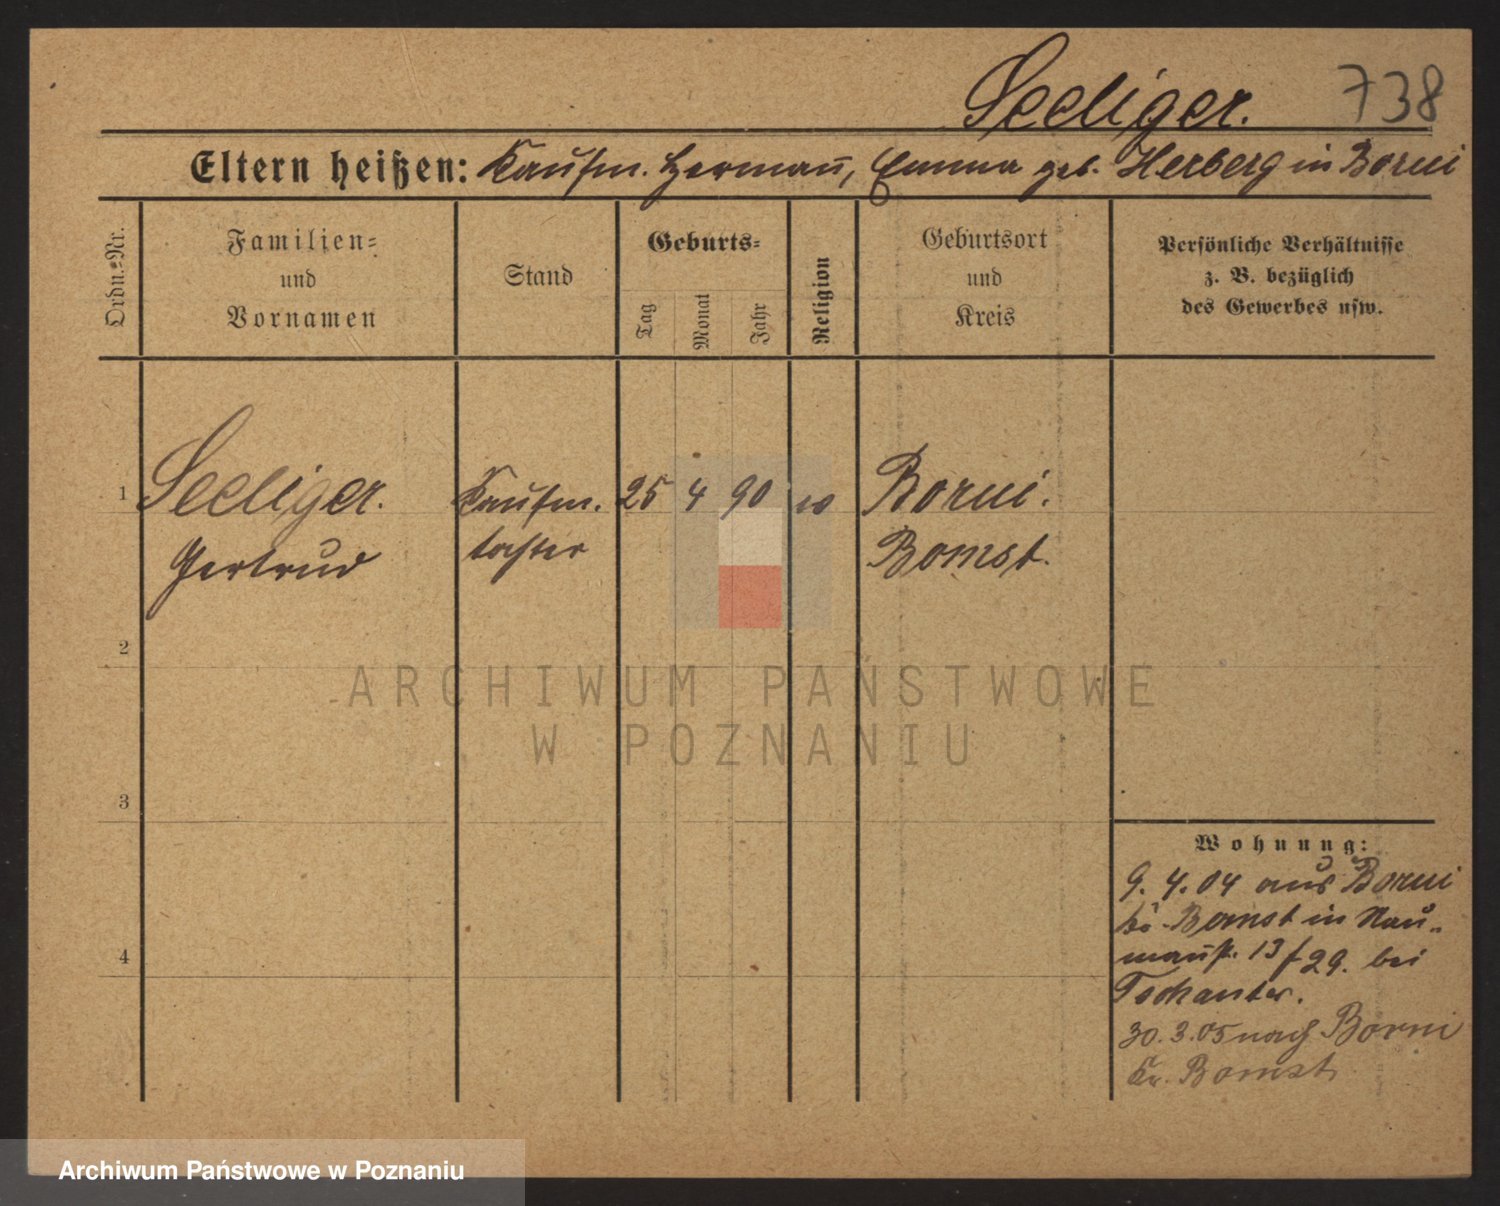 Seeliger. 738
Eltern heißen: Kaufm. Hermann, Emma geb. Herberg in Borui
Ordn.-Nr.
Familien-
und
Vornamen
Stand
Geburts-
Tag
Monat
Jahr
Religion
Geburtsort
und
Kreis
Persönliche Verhältnisse
z. B. bezüglich
des Gewerbes usw.
1 Seeliger. Kaufm. 25 4 90 Borui.
Gertrud tochter Bomst.
2
3
4
ARCHIWUM PAŃSTWOWE
W POZNANIU
Wohnung:
9. 4. 04 aus Borui
Bomst in Nau-
mannst. 13 29. bei
30. 3. 05 nach Borui
Kr. Bomst
Archiwum Państwowe w Poznaniu